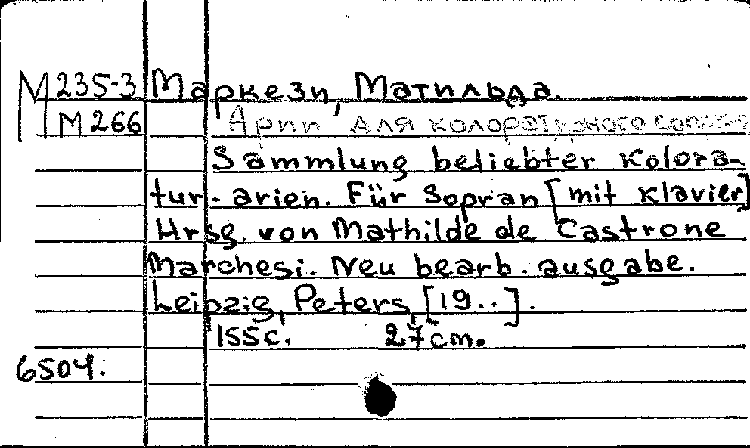 М 235-3 Маркези, Матильда.
М 266 Арии для колоратурного сопрано
Sammlung beliebter Kolora-
tur-arien. Für Sopran [mit Klavier]
Hrsg. von Mathilde de Castrone
Marchesi. Neu bearb. ausgabe.
Leipzig, Peters, [19..].
155с. 27cm.
6504.